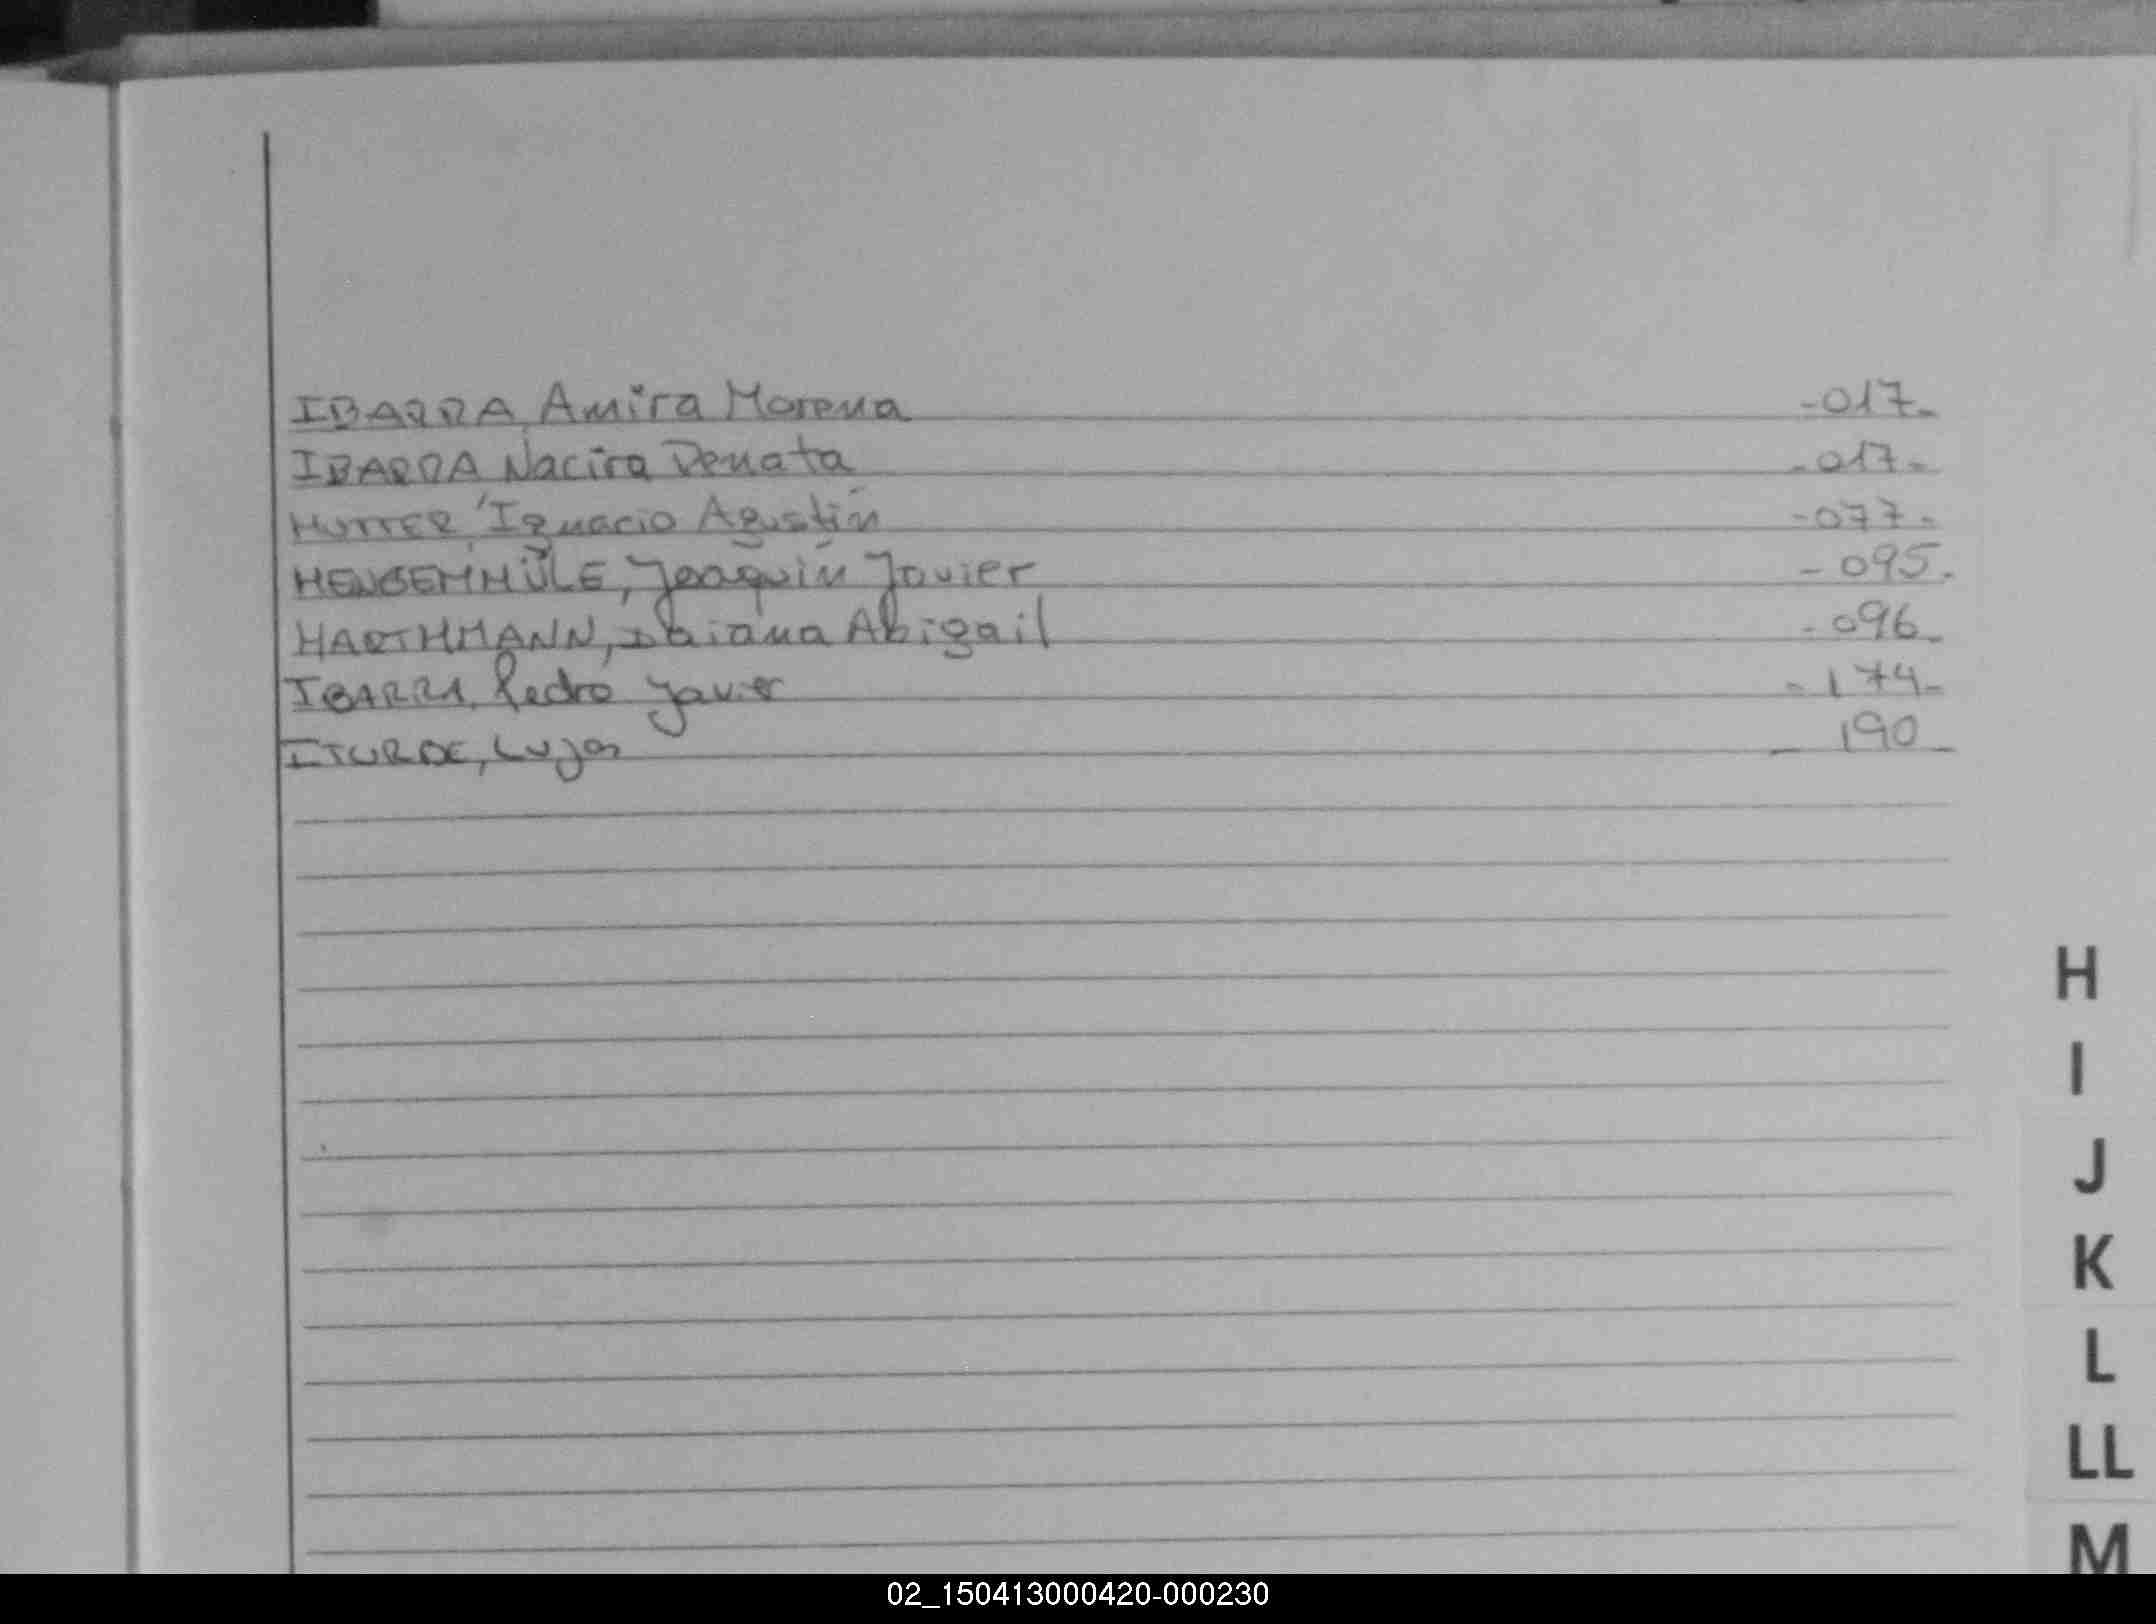 IBARRA, Amira Morena -017-
IBARRA Nacira Renata -017-
HUTTER, Ignacio Agustín -077-
HENGEMÜLE, Joaquín Javier -095-
HARTHMANN, Daiana Abigail -096-
IBARRA, Pedro Javier -174-
ITURBE, Lujan - 190 -
H
I
J
K
L
LL
M
02_150413000420-000230